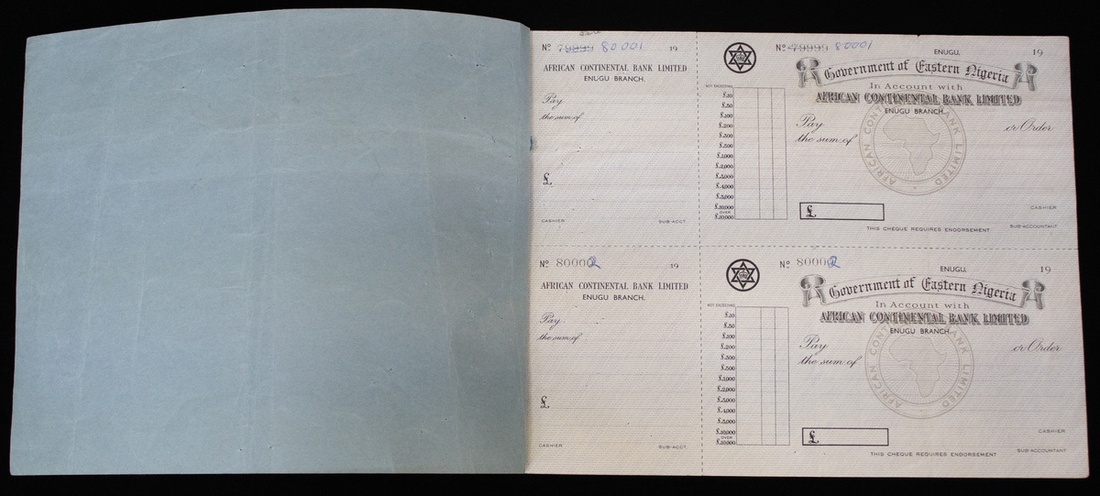 Nº 79999 80001 19
AFRICAN CONTINENTAL BANK LIMITED
ENUGU BRANCH.
Pay
the sum of
£
CASHIER SUB-ACCT.
NOT EXCEEDING
£20
£50
£100
£200
£500
£1,000
£2,000
£3,000
£4,000
£5,000
£10,000
OVER
£10,000
Nº 79999 80001
ENUGU, 19
Government of Eastern Nigeria
In Account with
AFRICAN CONTINENTAL BANK LIMITED
ENUGU BRANCH.
Pay or Order
the sum of
AFRICAN CONTINENTAL BANK LIMITED
£
CASHIER
THIS CHEQUE REQUIRES ENDORSEMENT SUB-ACCOUNTANT
Nº 80002 19
AFRICAN CONTINENTAL BANK LIMITED
ENUGU BRANCH.
Pay
the sum of
£
CASHIER SUB-ACCT.
NOT EXCEEDING
£20
£50
£100
£200
£500
£1,000
£2,000
£3,000
£4,000
£5,000
£10,000
OVER
£10,000
Nº 80002
ENUGU, 19
Government of Eastern Nigeria
In Account with
AFRICAN CONTINENTAL BANK LIMITED
ENUGU BRANCH.
Pay or Order
the sum of
AFRICAN CONTINENTAL BANK LIMITED
£
CASHIER
THIS CHEQUE REQUIRES ENDORSEMENT SUB-ACCOUNTANT